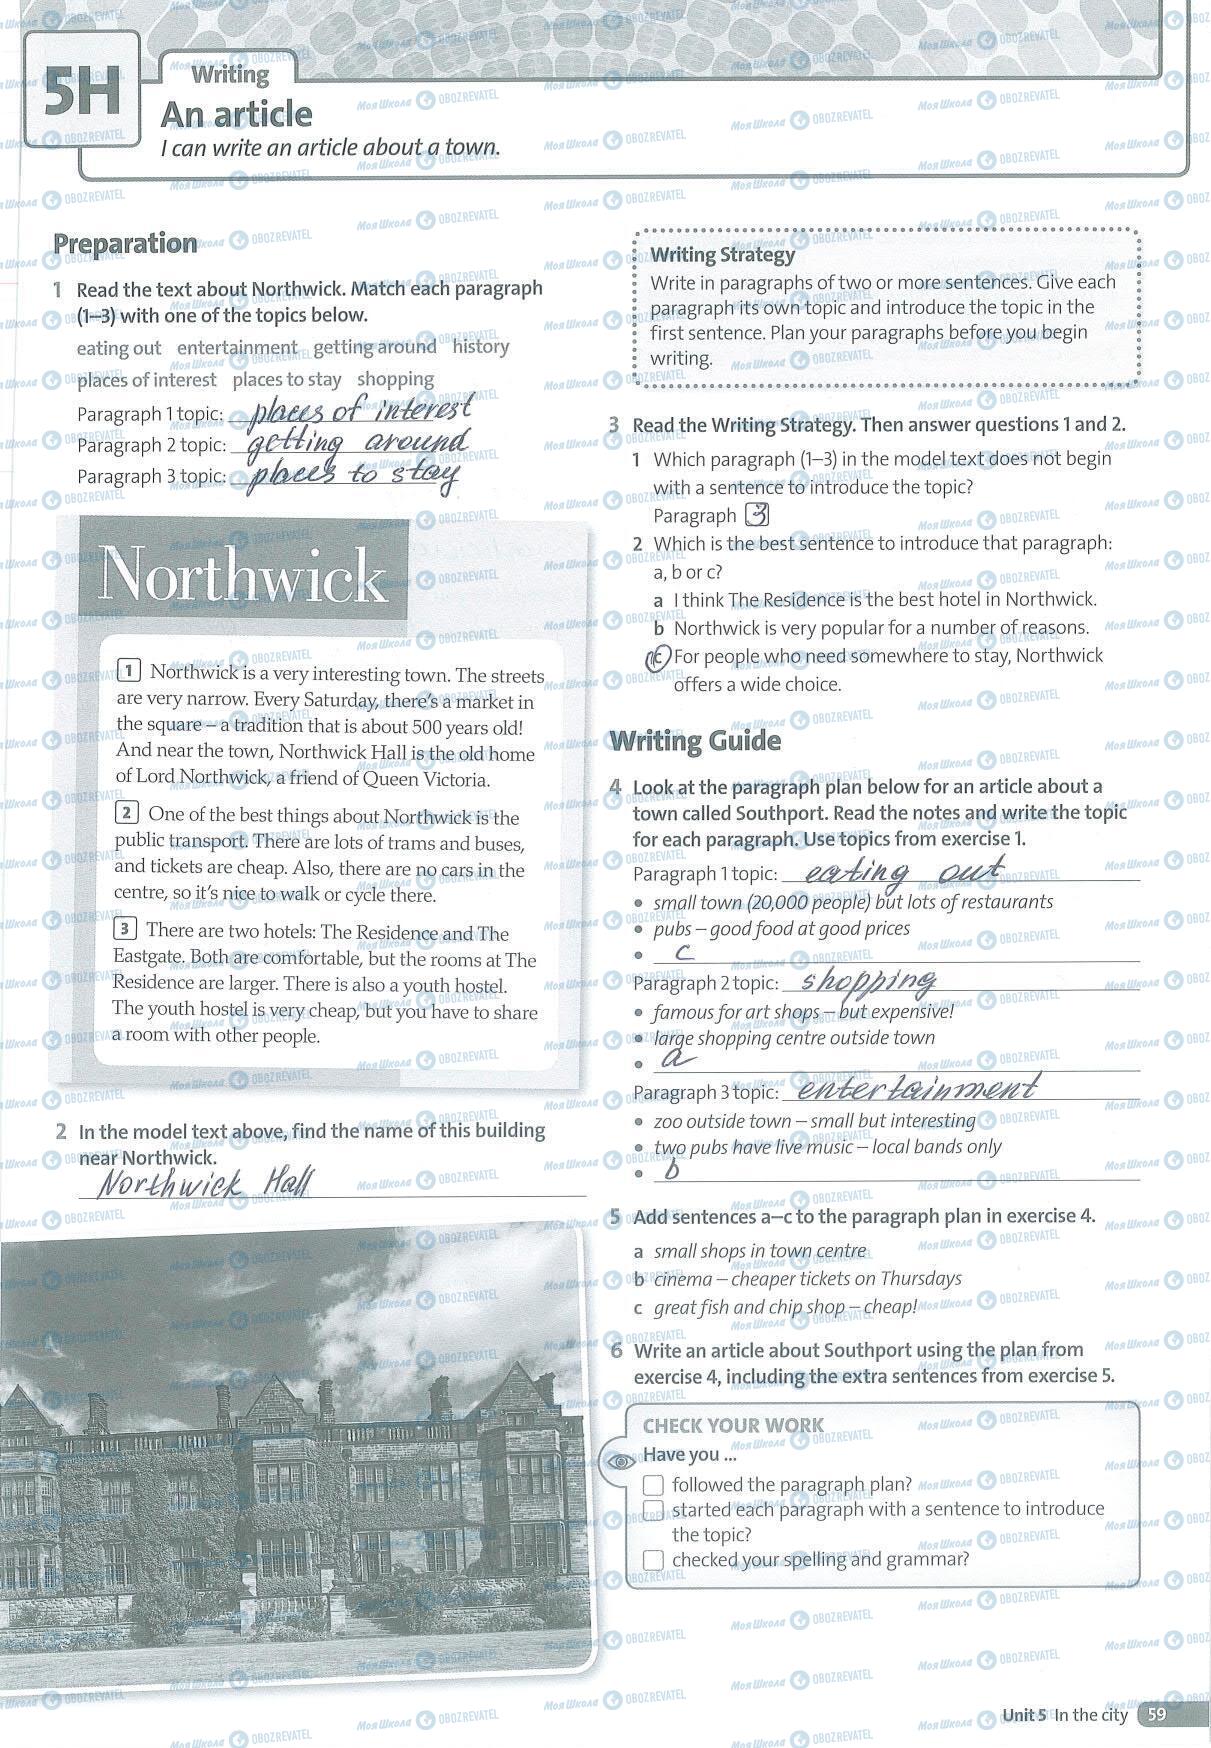 5H
Writing
An article
I can write an article about a town.
Preparation
1 Read the text about Northwick. Match each paragraph
(1–3) with one of the topics below.
eating out entertainment getting around history
places of interest places to stay shopping
Paragraph 1 topic: places of interest
Paragraph 2 topic: getting around
Paragraph 3 topic: places to stay
Northwick
1 Northwick is a very interesting town. The streets
are very narrow. Every Saturday, there's a market in
the square – a tradition that is about 500 years old!
And near the town, Northwick Hall is the old home
of Lord Northwick, a friend of Queen Victoria.
2 One of the best things about Northwick is the
public transport. There are lots of trams and buses,
and tickets are cheap. Also, there are no cars in the
centre, so it's nice to walk or cycle there.
3 There are two hotels: The Residence and The
Eastgate. Both are comfortable, but the rooms at The
Residence are larger. There is also a youth hostel.
The youth hostel is very cheap, but you have to share
a room with other people.
2 In the model text above, find the name of this building
near Northwick.
Northwick Hall
Writing Strategy
Write in paragraphs of two or more sentences. Give each
paragraph its own topic and introduce the topic in the
first sentence. Plan your paragraphs before you begin
writing.
3 Read the Writing Strategy. Then answer questions 1 and 2.
1 Which paragraph (1–3) in the model text does not begin
with a sentence to introduce the topic?
Paragraph 3
2 Which is the best sentence to introduce that paragraph:
a, b or c?
a I think The Residence is the best hotel in Northwick.
b Northwick is very popular for a number of reasons.
c For people who need somewhere to stay, Northwick
offers a wide choice.
Writing Guide
4 Look at the paragraph plan below for an article about a
town called Southport. Read the notes and write the topic
for each paragraph. Use topics from exercise 1.
Paragraph 1 topic: eating out
• small town (20,000 people) but lots of restaurants
• pubs – good food at good prices
• c
Paragraph 2 topic: shopping
• famous for art shops – but expensive!
• large shopping centre outside town
• a
Paragraph 3 topic: entertainment
• zoo outside town – small but interesting
• two pubs have live music – local bands only
• b
5 Add sentences a–c to the paragraph plan in exercise 4.
a small shops in town centre
b cinema – cheaper tickets on Thursdays
c great fish and chip shop – cheap!
6 Write an article about Southport using the plan from
exercise 4, including the extra sentences from exercise 5.
CHECK YOUR WORK
Have you ...
followed the paragraph plan?
started each paragraph with a sentence to introduce
the topic?
checked your spelling and grammar?
Unit 5 In the city 59
Моя Школа OBOZREVATEL